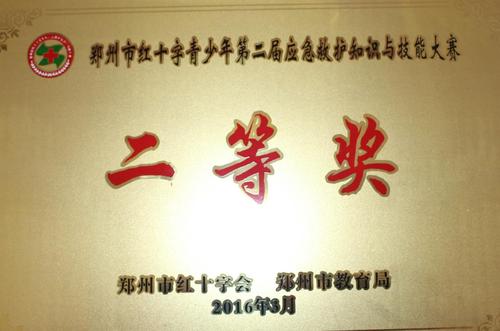 郑州市红十字青少年第二届应急救护知识与技能大赛
二等奖
郑州市红十字会 郑州市教育局
2016年3月